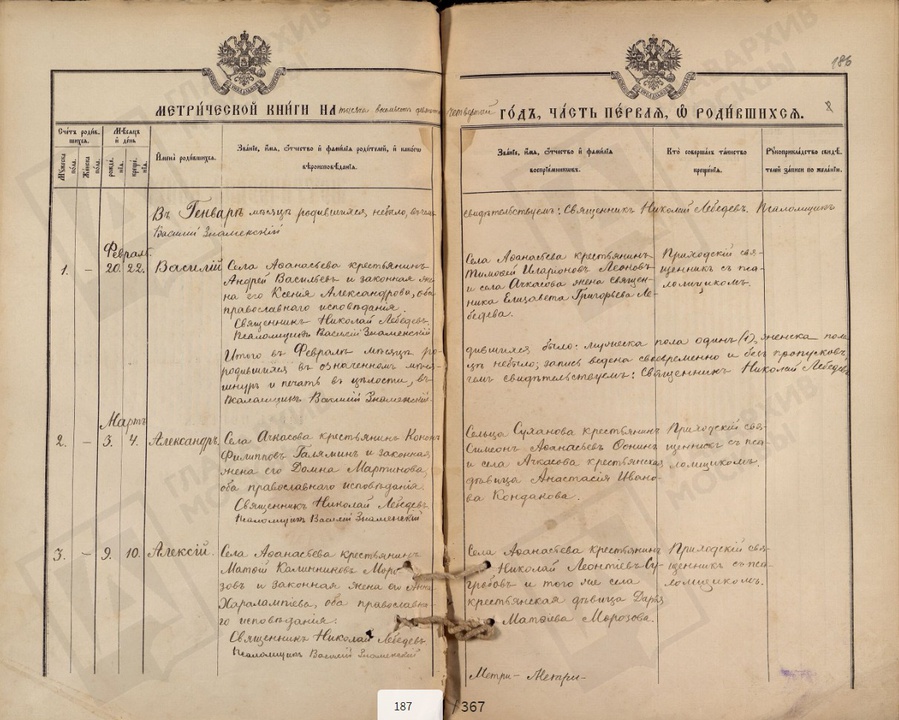 186
МЕТРИЧЕСКОЙ КНИГИ НА тысяча восемьсот девяносто четвертый ГОДЪ, ЧАСТЬ ПЕРВАЯ, Ѡ РОДИВШИХСЯ.
Счетъ родив-
шихся.
Мѣсяцъ
и день
Мужеска
пола.
Женска
пола.
рожде-
нія.
креще-
нія.
Имена родившихся.
Званіе, имя, отчество и фамилія родителей, и какого
вѣроисповѣданія.
Званіе, имя, отчество и фамилія
воспріемниковъ.
Кто совершалъ таинство
крещенія.
Рукоприкладство свидѣ-
телей записи по желанію.
Въ Генварѣ мѣсяцѣ родившихся небыло, въ чемъ свидѣтельствуемъ: Священникъ Николай Лебедевъ. Псаломщикъ
Василій Знаменскій
Февраль
1. – 20. 22. Василій
Села Аѳанасьева крестьянинъ
Андрей Васильевъ и законная же-
на его Ксенія Александрова, оба
православнаго исповѣданія.
Священникъ Николай Лебедевъ.
Псаломщикъ Василій Знаменскій
Села Аѳанасьева крестьянинъ
Тимоѳей Иларіоновъ Леоновъ
и села Ачкасова жена священ-
ника Елизавета Григорьева Ле-
бедева.
Приходскій свя-
щенникъ съ пса-
ломщикомъ.
Итого въ Февралѣ мѣсяцѣ ро-
дившихся было: мужеска пола одинъ (1), женска пола
родившихся въ означенномъ мѣся-
цѣ небыло; запись ведена своевременно и безъ пропусковъ,
шнуръ и печать въ цѣлости, въ
чемъ свидѣтельствуемъ: Священникъ Николай Лебедевъ
Псаломщикъ Василій Знаменскій.
Мартъ
2. – 3. 4. Александръ.
Села Ачкасова крестьянинъ Кононъ
Филипповъ Галяминъ и законная
жена его Домна Мартинова,
оба православнаго исповѣданія.
Священникъ Николай Лебедевъ
Псаломщикъ Василій Знаменскій
Сельца Суханова крестьянинъ
Симеонъ Аѳанасьевъ
и села Ачкасова крестьянская
дѣвица Анастасія Ивано-
ва Конданова.
Приходскій свя-
щенникъ съ пса-
ломщикомъ.
3. – 9. 10. Алексій.
Села Аѳанасьева крестьянинъ
Матѳей Калинниковъ Моро-
зовъ и законная жена его Анна
Харалампіева, оба православна-
го исповѣданія.
Священникъ Николай Лебедевъ
Псаломщикъ Василій Знаменскій
Села Аѳанасьева крестьянинъ
Николай Леонтіевъ Су-
гробовъ и того же села
крестьянская дѣвица Дарья
Матѳіева Морозова.
Приходскій свя-
щенникъ съ пса-
ломщикомъ.
Метри- Метри-
187 / 367
ГЛАВАРХИВ
МОСКВЫ